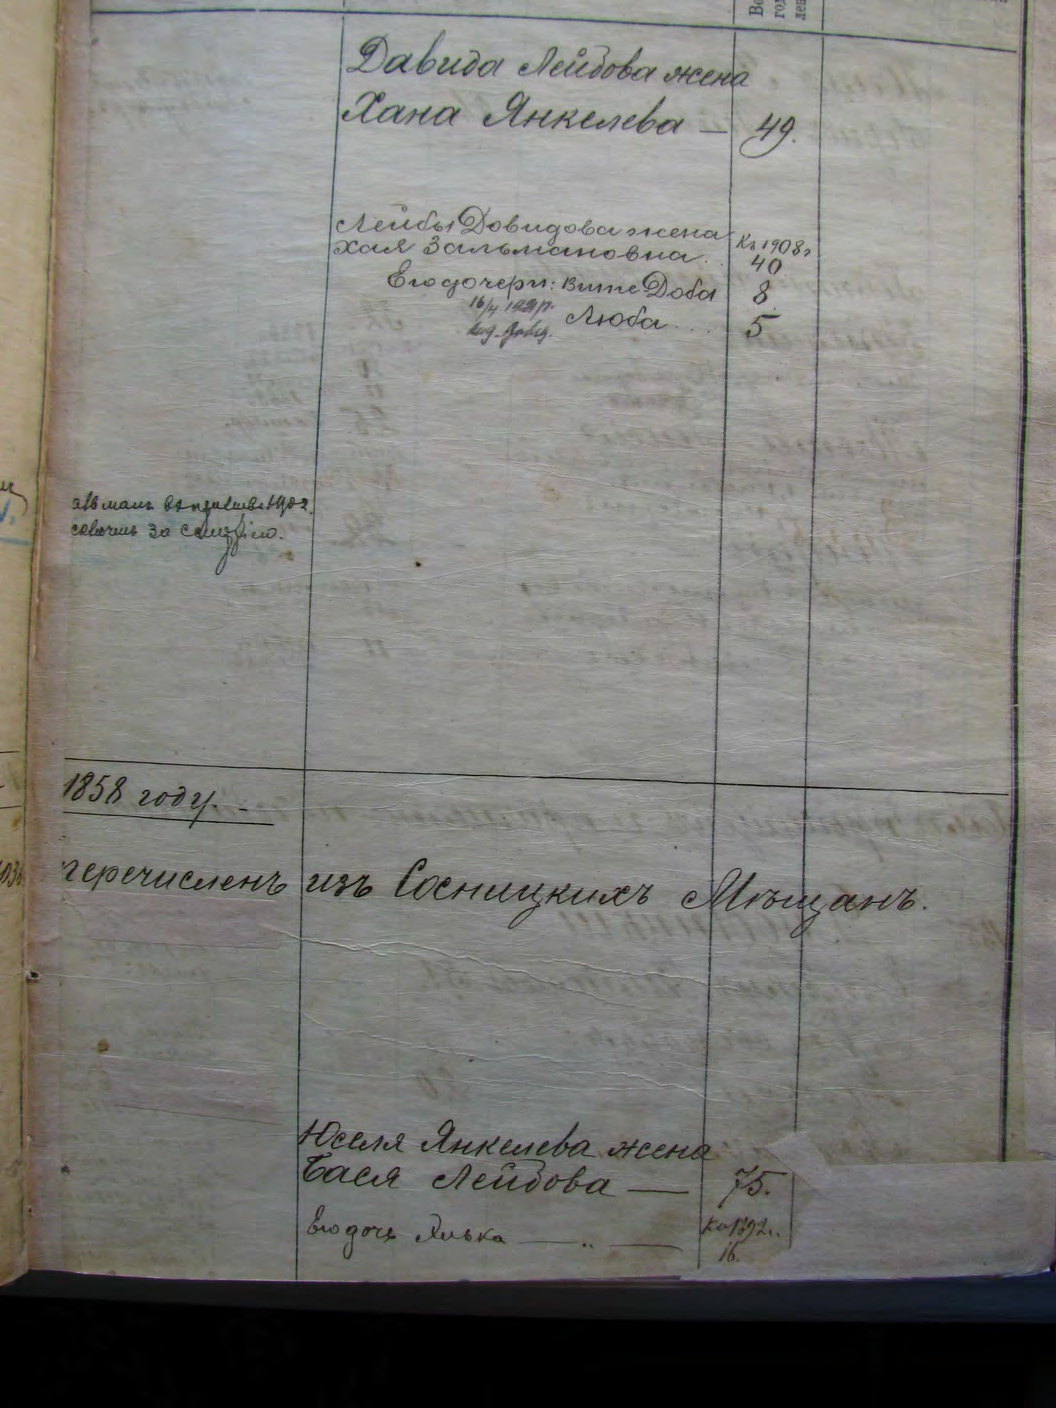 Давида Лейбова жена
Хана Янкелева — 49.
Лейбы Довидова жена
Хая Зальмановна. Къ 1908 г
40
Его дочери: Вите-Доба 8
16/4 1921 г.
Люба... 5
1902.
за
1858 году. -
перечисленъ изъ Сосницкихъ Мѣщанъ.
Юселя Янкелева жена
Бася Лейбова — 75.
Его дочь Хилька — „ — Къ 1892 г.
16.